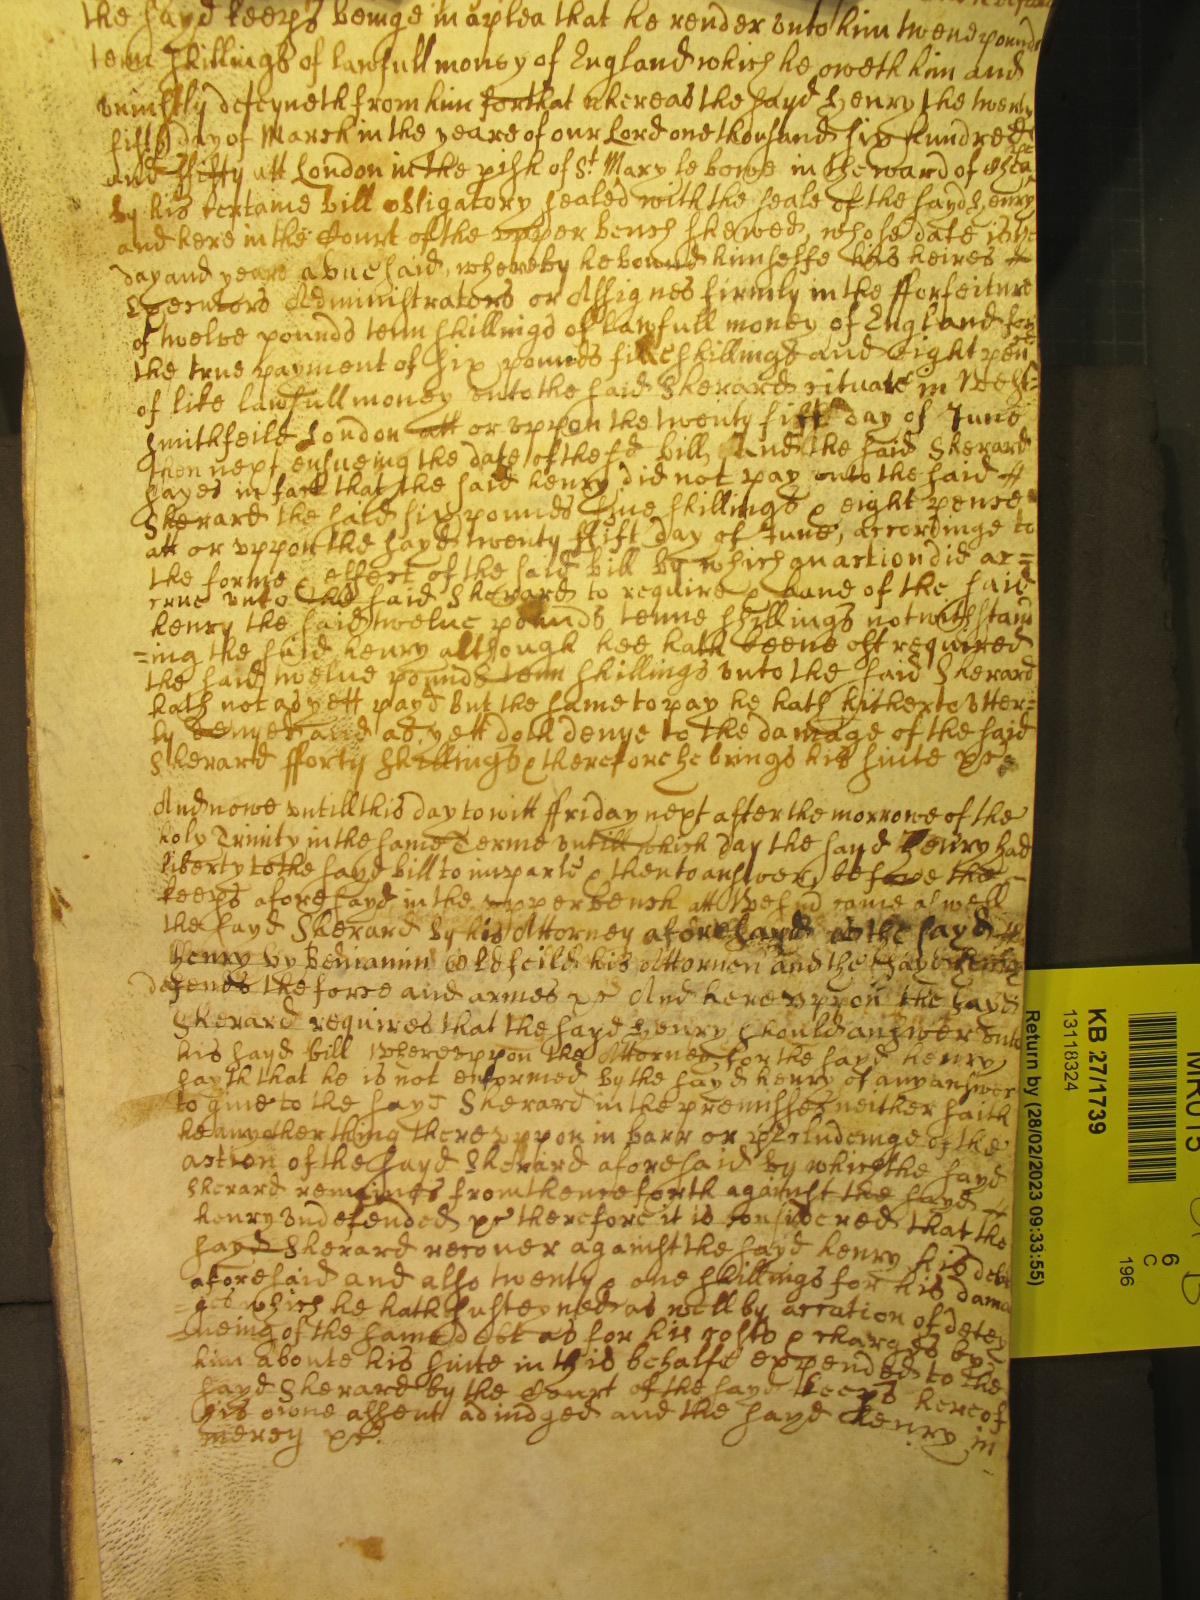 the sayd keeps beinge in a plea that he render unto him twelve pounds
tenn shillings of lawfull money of England which he oweth him and
uniustly deteyneth from him for that whereas the sayd Henry the twenty
fifth day of March in the yeare of our Lord one thousand six hundred
and ffifty att London in the pish of St Mary le bowe in the ward of Chea
by his certaine bill obligatory sealed with the seale of the sayd Henry
and here in the Court of the upper bench shewed, whose date is ye
day and yeare abouesaid, whereby he bound himselfe his heires
Executors Administrators or Assignes firmly in the fforfeiture
of twelve pounds tenn shillings of lawfull money of England for
the true payment of six pounds five shillings and eight pen
of like lawfull money unto the said Sherard situate in West=
smithfeild London att or uppon the twenty fift day of June
then next ensueing the date of the sd bill, And the said Sherard
sayes in fact that the said henry did not pay unto the said
Sherard the said six pounds fiue shillings & eight pence
att or uppon the sayd twenty ffift day of June, accordinge to
the forme & effect of the said bill by which an action did ac=
crue unto the said Sherard to require & haue of the said
henry the said twelue pounds tenne shillings notwithstand
=ing the said henry although hee hath beene oft required
the said twelue pounds tenn shillings unto the said Sherard
hath not as yett payd but the same to pay he hath hitherto utter=
ly denyed and as yett doth denye to the damage of the said
Sherard fforty shillings & therefore he brings his suite &c
And nowe untill this day to witt ffriday next after the morrowe of the
holy Trinity in the same Terme untill which day the sayd Henry had
liberty to the sayd bill to imparle & then to answer, before the
keeps aforesayd in the upper bench att Westmr came as well
the sayd Sherard by his Attorney aforesayd as the sayd
Henry by Beniamin Oldfeild his Attorney and the sayd Henry
defends the force and armes &c And hereuppon the sayd
Sherard requires that the sayd Henry should answer unto
his sayd bill Whereuppon the Attorney for the sayd henry
sayth that he is not enformed by the sayd henry of any answer
to giue to the sayd Sherard in the premisses neither saith
he any other thing thereuppon in barr or precludeinge of the
action of the sayd Sherard aforesaid by which the sayd
Sherard remaines from thenceforth against the sayd
henry undefended &c therefore it is considered that the
sayd Sherard recouer against the sayd henry his debt
aforesaid and also twenty & one shillings for his dama
=ges which he hath susteyned as well by occation of detey
=neing of the same debt as for his costs & charges by
him aboute his suite in this behalfe expended to the
sayd Sherard by the Court of the sayd keeps hereof
his owne assent adiudged and the sayd henry in
mercy &c.
KB 27/1739
13118324
Return by (28/02/2023 09:33:55)
6
C
196